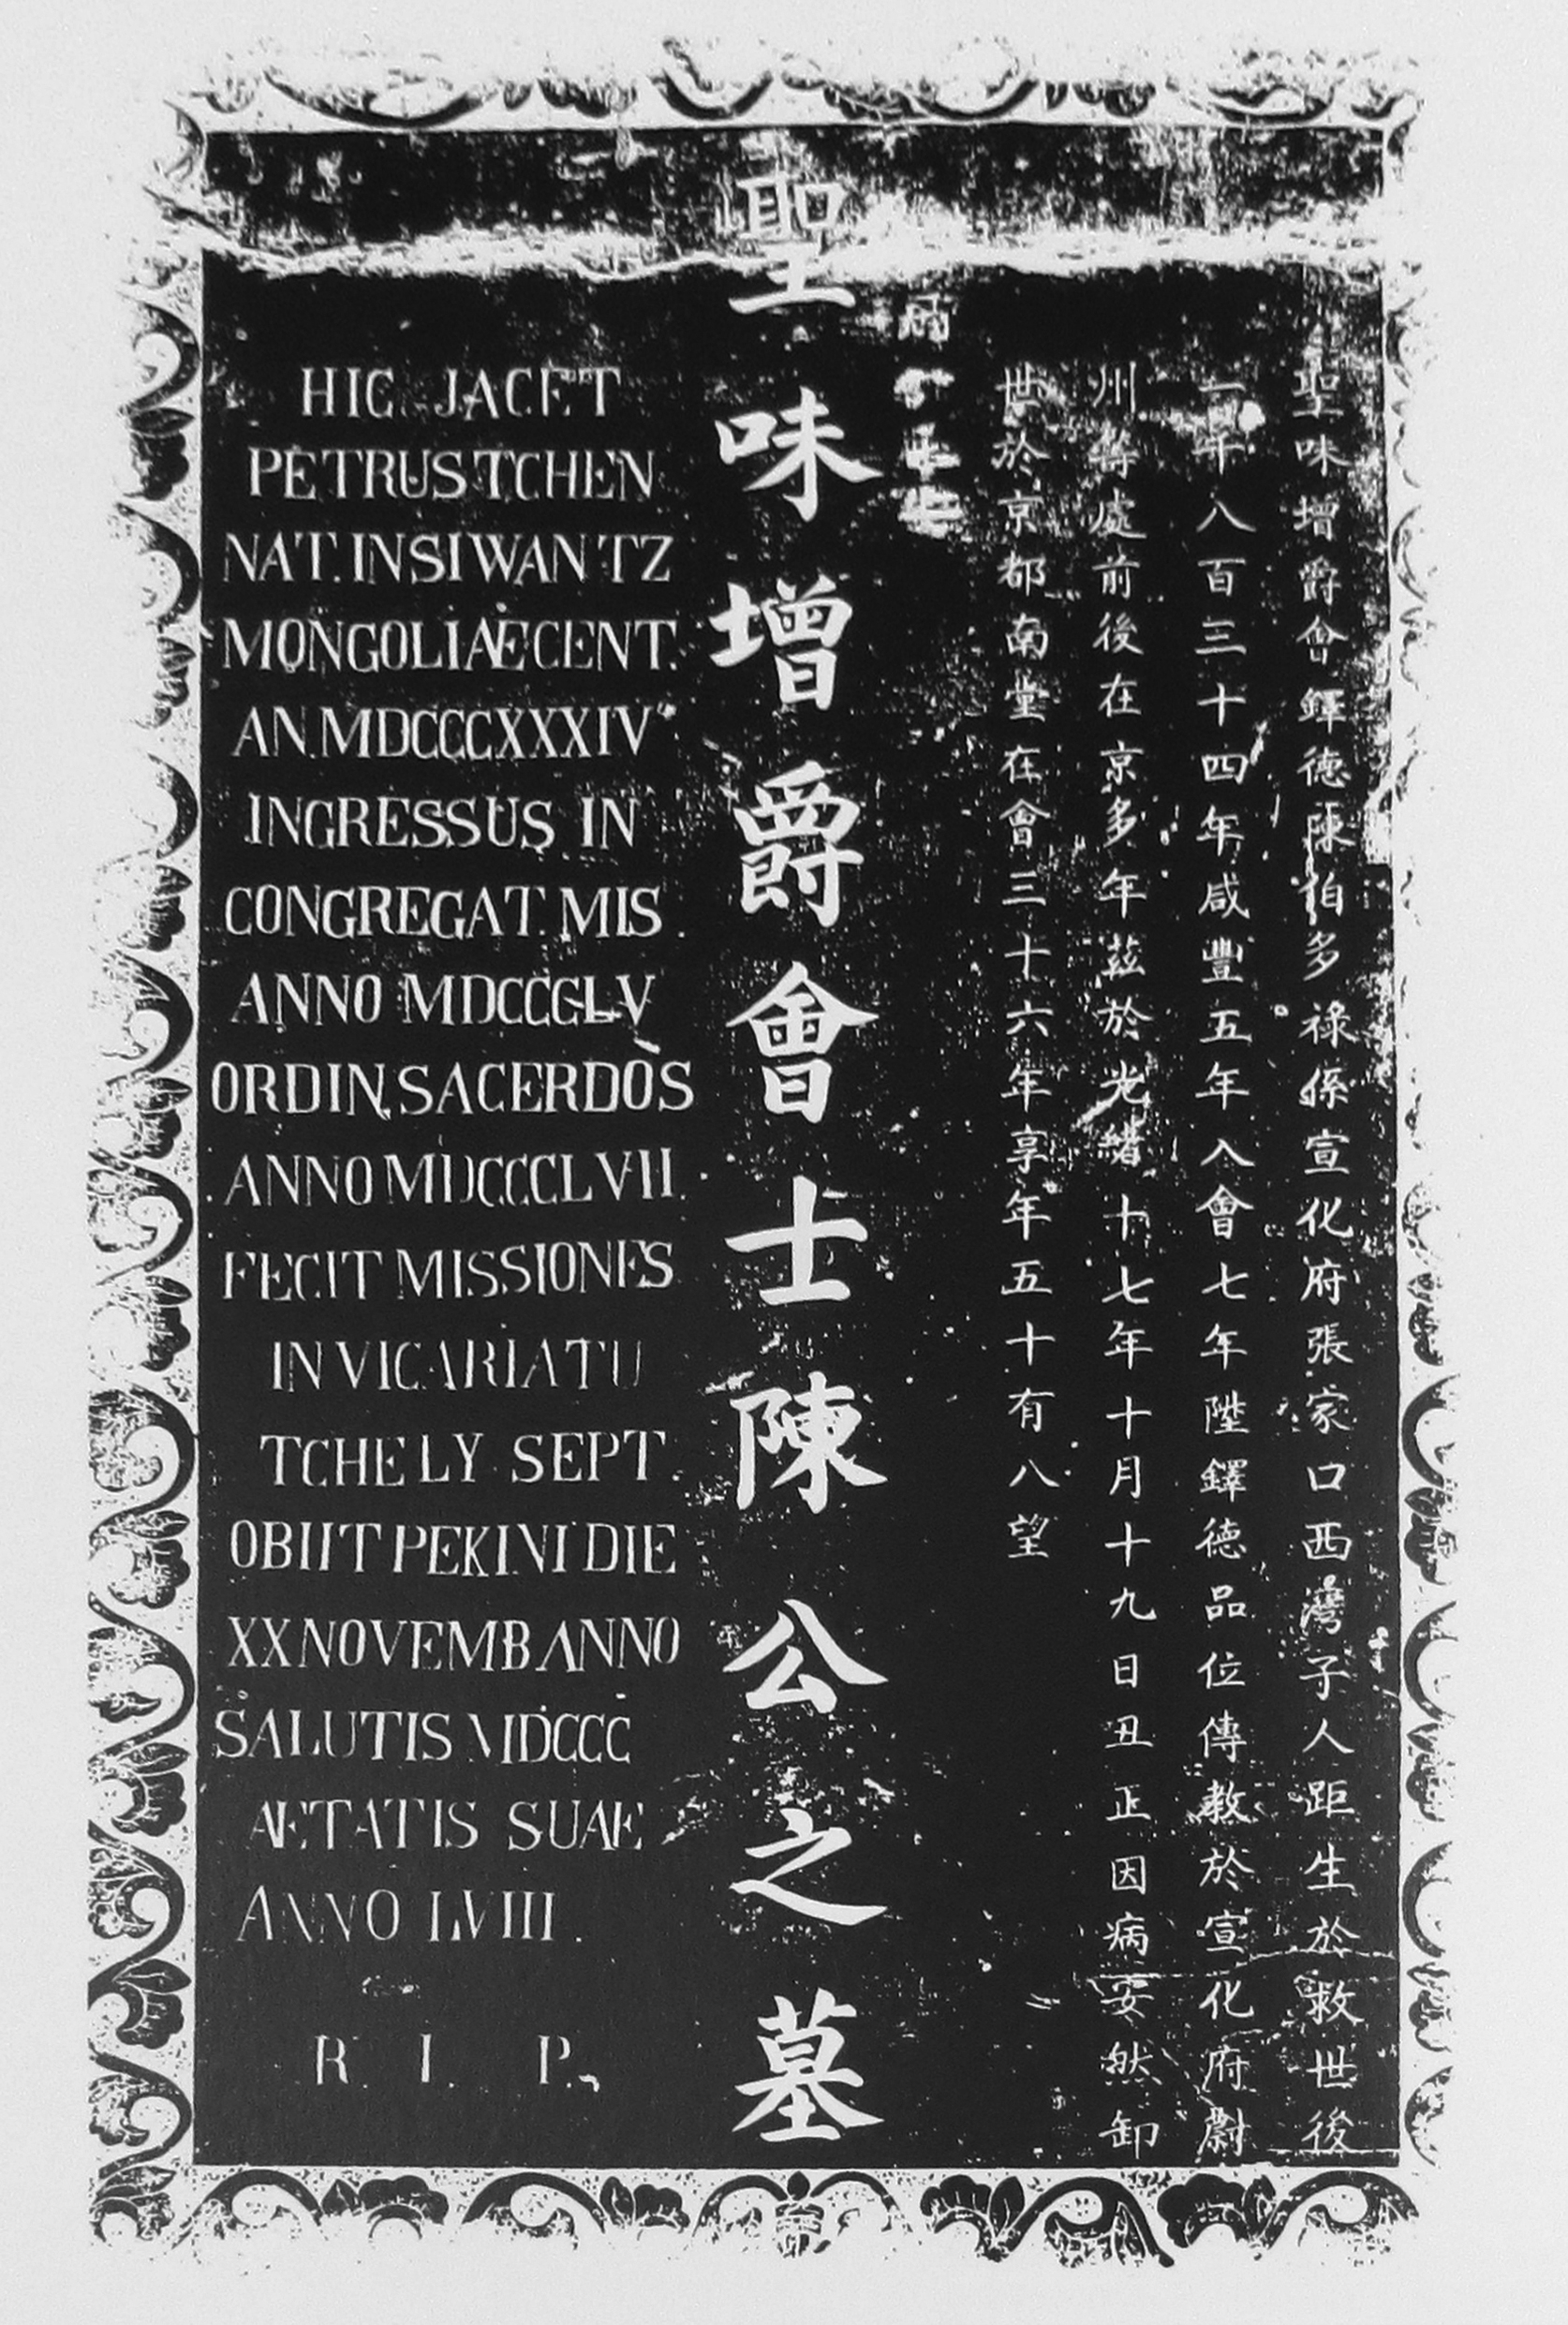 聖味增爵會鐸德陳伯多祿係宣化府張家口西灣子人距生於救世後
一千八百三十四年咸豐五年入會七年陞鐸德品位傳教於宣化府蔚
州等處前後在京多年茲於光緒十七年十月十九日丑正因病安然卸
世於京都南堂在會三十六年享年五十有八望
聖味增爵會士陳公之墓
HIC JACET
PETRUS TCHEN
NAT. IN SI WAN TZ
MONGOLIÆ CENT.
AN. MDCCCXXXIV
INGRESSUS IN
CONGREGAT. MIS.
ANNO MDCCCLV
ORDIN. SACERDOS
ANNO MDCCCLVII.
FECIT MISSIONES
IN VICARIATU
TCHELY SEPT.
OBIIT PEKINI DIE
XX NOVEMB ANNO
SALUTIS MDCCC
ÆTATIS SUÆ
ANNO LVIII.
R. I. P.